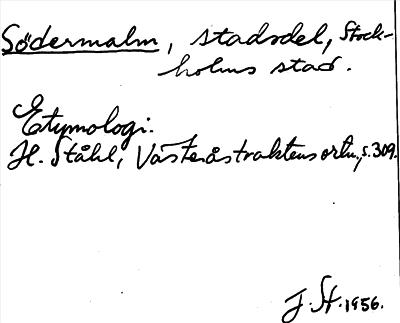 Södermalm, stadsdel, Stock-
holms stad.
Etymologi.
H. Ståhl, Västeråstraktens ortn., s. 309.
J. St. 1956.